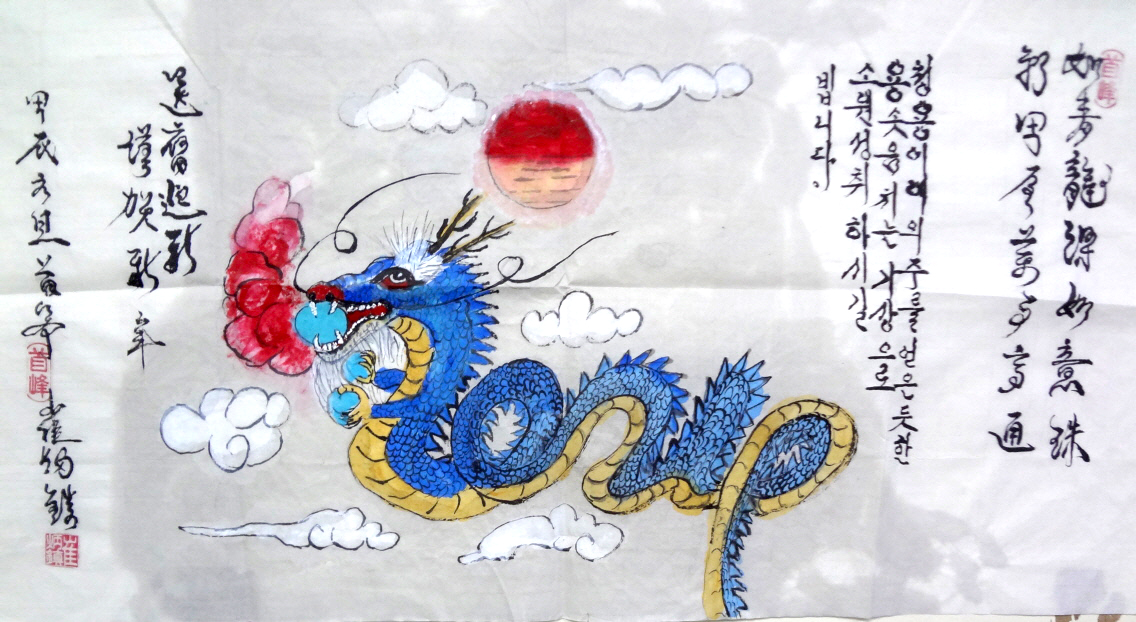 首峰
如青龍得如意珠
甲辰萬事亨通
청용이 여의주를 얻은 듯한
용솟음치는 기상으로
소원성취 하시길
빕니다.
送舊迎新
謹賀新年
甲辰元旦 首峯
首峰
崔炳